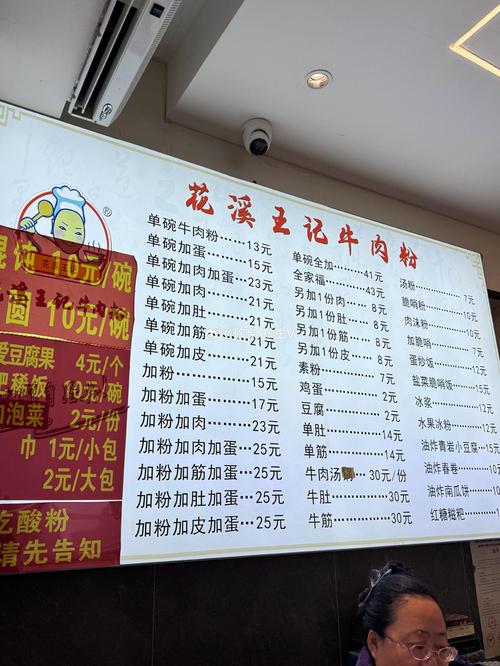 花溪王记牛肉粉
®
10元/碗
圆 10元/碗
豆腐果 4元/个
稀饭 10元/碗
泡菜 2元/份
巾 1元/小包
2元/大包
吃酸粉
请先告知
单碗牛肉粉……13元
单碗加蛋……15元
单碗加肉加蛋……23元
单碗加肉……21元
单碗加肚……21元
单碗加筋……21元
单碗加皮……21元
加粉……15元
加粉加蛋……17元
加粉加肉……23元
加粉加肉加蛋…25元
加粉加筋加蛋…25元
加粉加肚加蛋…25元
加粉加皮加蛋…25元
单碗全加……41元
全家福……43元
另加1份肉……8元
另加1份肚……8元
另加1份筋……8元
另加1份皮……8元
素粉……7元
鸡蛋……2元
豆腐……2元
单肚……14元
单筋……14元
牛肉汤…30元/份
牛肚……30元
牛筋……30元
汤粉……7元
脆哨粉……10元
肉沫粉……10元
加脆哨……7元
蛋炒饭……12元
盐菜脆哨饭……15元
冰浆……12元
水果冰粉……12
油炸青岩小豆腐…15元
油炸春卷……10元
油炸南瓜饼……10元
红糖糍粑……10